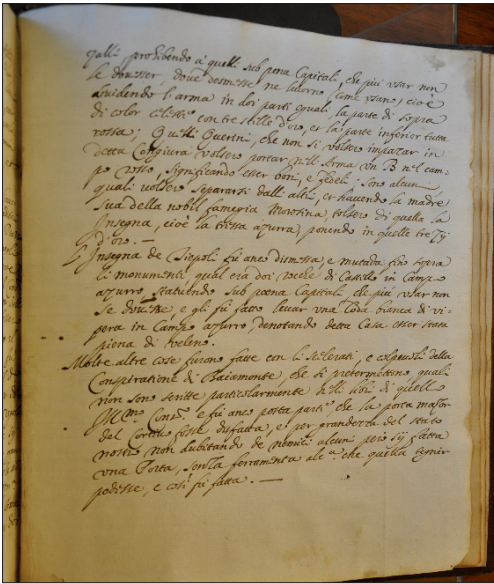 galli prohibendo à quelli sub pena Capital, che piu usar non
se dovesser, dove dismisse ne furono, come usano, cioè
dividendo l'arma in doi parti equali, la parte di sopra
di color Celeste con tre stelle d'oro, et la parte inferior tutta
rossa; Quelli Querini, che non si volsero impazar in
detta Congiura volsero portar nell'Arma un B nel cam-
po rosso, significando esser boni, e fedeli; sono alcuni,
quali volsero separarsi dall'altri, et havendo la madre
sua della nobil fameglia Morosina, tolsero di quella la
Insegna, cioè la trissa azurra, ponendo in quelle tre
d'oro. —
L'Insegna de Tiepoli fu anco dismessa, e mutada fino sopra
li monumenti qual era doi rocele di Castello in Campo
azurro, statuendo sub pœna Capital, che piu usar non
se dovesse, e gli fù fatto levar una Coda bianca di vi-
pera in Campo azurro, denotando detta Casa esser stata
piena di Veleno.
Molte altre cose furono fatte con li scelerati, e colpevoli della
Conspiratione di Baiamonte, che si pretermettono, quali
non sono scritte particolarmente nelli libri di quell'
Cons.º e fù anco posta parte, che la porta mazor
del Cortivo fosse disfatta, e per grandezza del stato
nostro non dubitando de nemici alcuni però fù fatta
una Porta, senza ferramenta alc.ª che quella tegnir
podesse, e così fù fatta. —